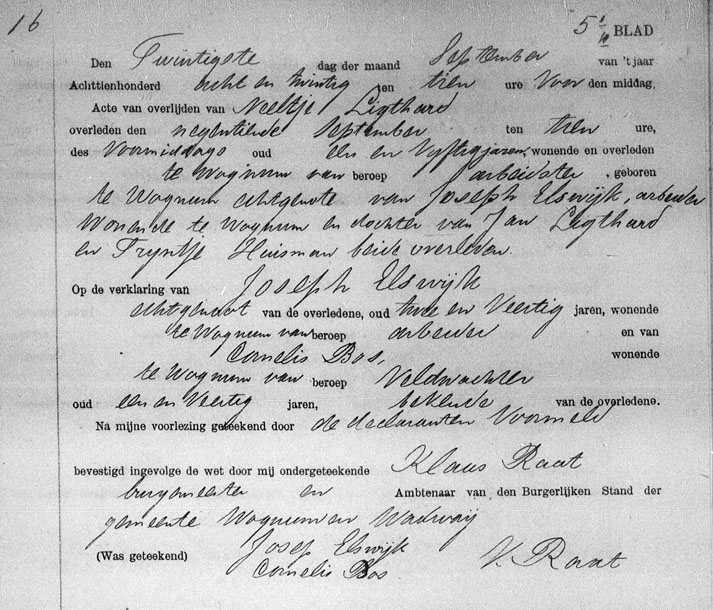 16
5 1/10 BLAD
Den Twintigste dag der maand September van 't jaar
Achttienhonderd acht en twintig ten tien ure Voor den middag,
Acte van overlijden van Neeltje Ligthard
overleden den negentiende September ten tien ure,
des Voormiddags oud een en Vyftig jaren, wonende en overleden
te Wognum van beroep arbeidster, geboren
te Wognum echtgenote van Joseph Elswijk, arbeider
Wonende te Wognum en dochter van Jan Ligthard
en Tryntje Huisman beide overleden.
Op de verklaring van Joseph Elswijk
echtgenoot van de overledene, oud twee en Veertig jaren, wonende
te Wognum van beroep arbeider en van
Cornelis Bos, wonende
te Wognum van beroep Veldwachter
oud een en Veertig jaren, bekende van de overledene.
Na mijne voorlezing geteekend door de declaranten Voormeld
bevestigd ingevolge de wet door mij ondergeteekende Klaas Raat
burgemeester en Ambtenaar van den Burgerlijken Stand der
gemeente Wognum en Wadway
(Was geteekend) Josep Elswijk
Cornelis Bos
K. Raat